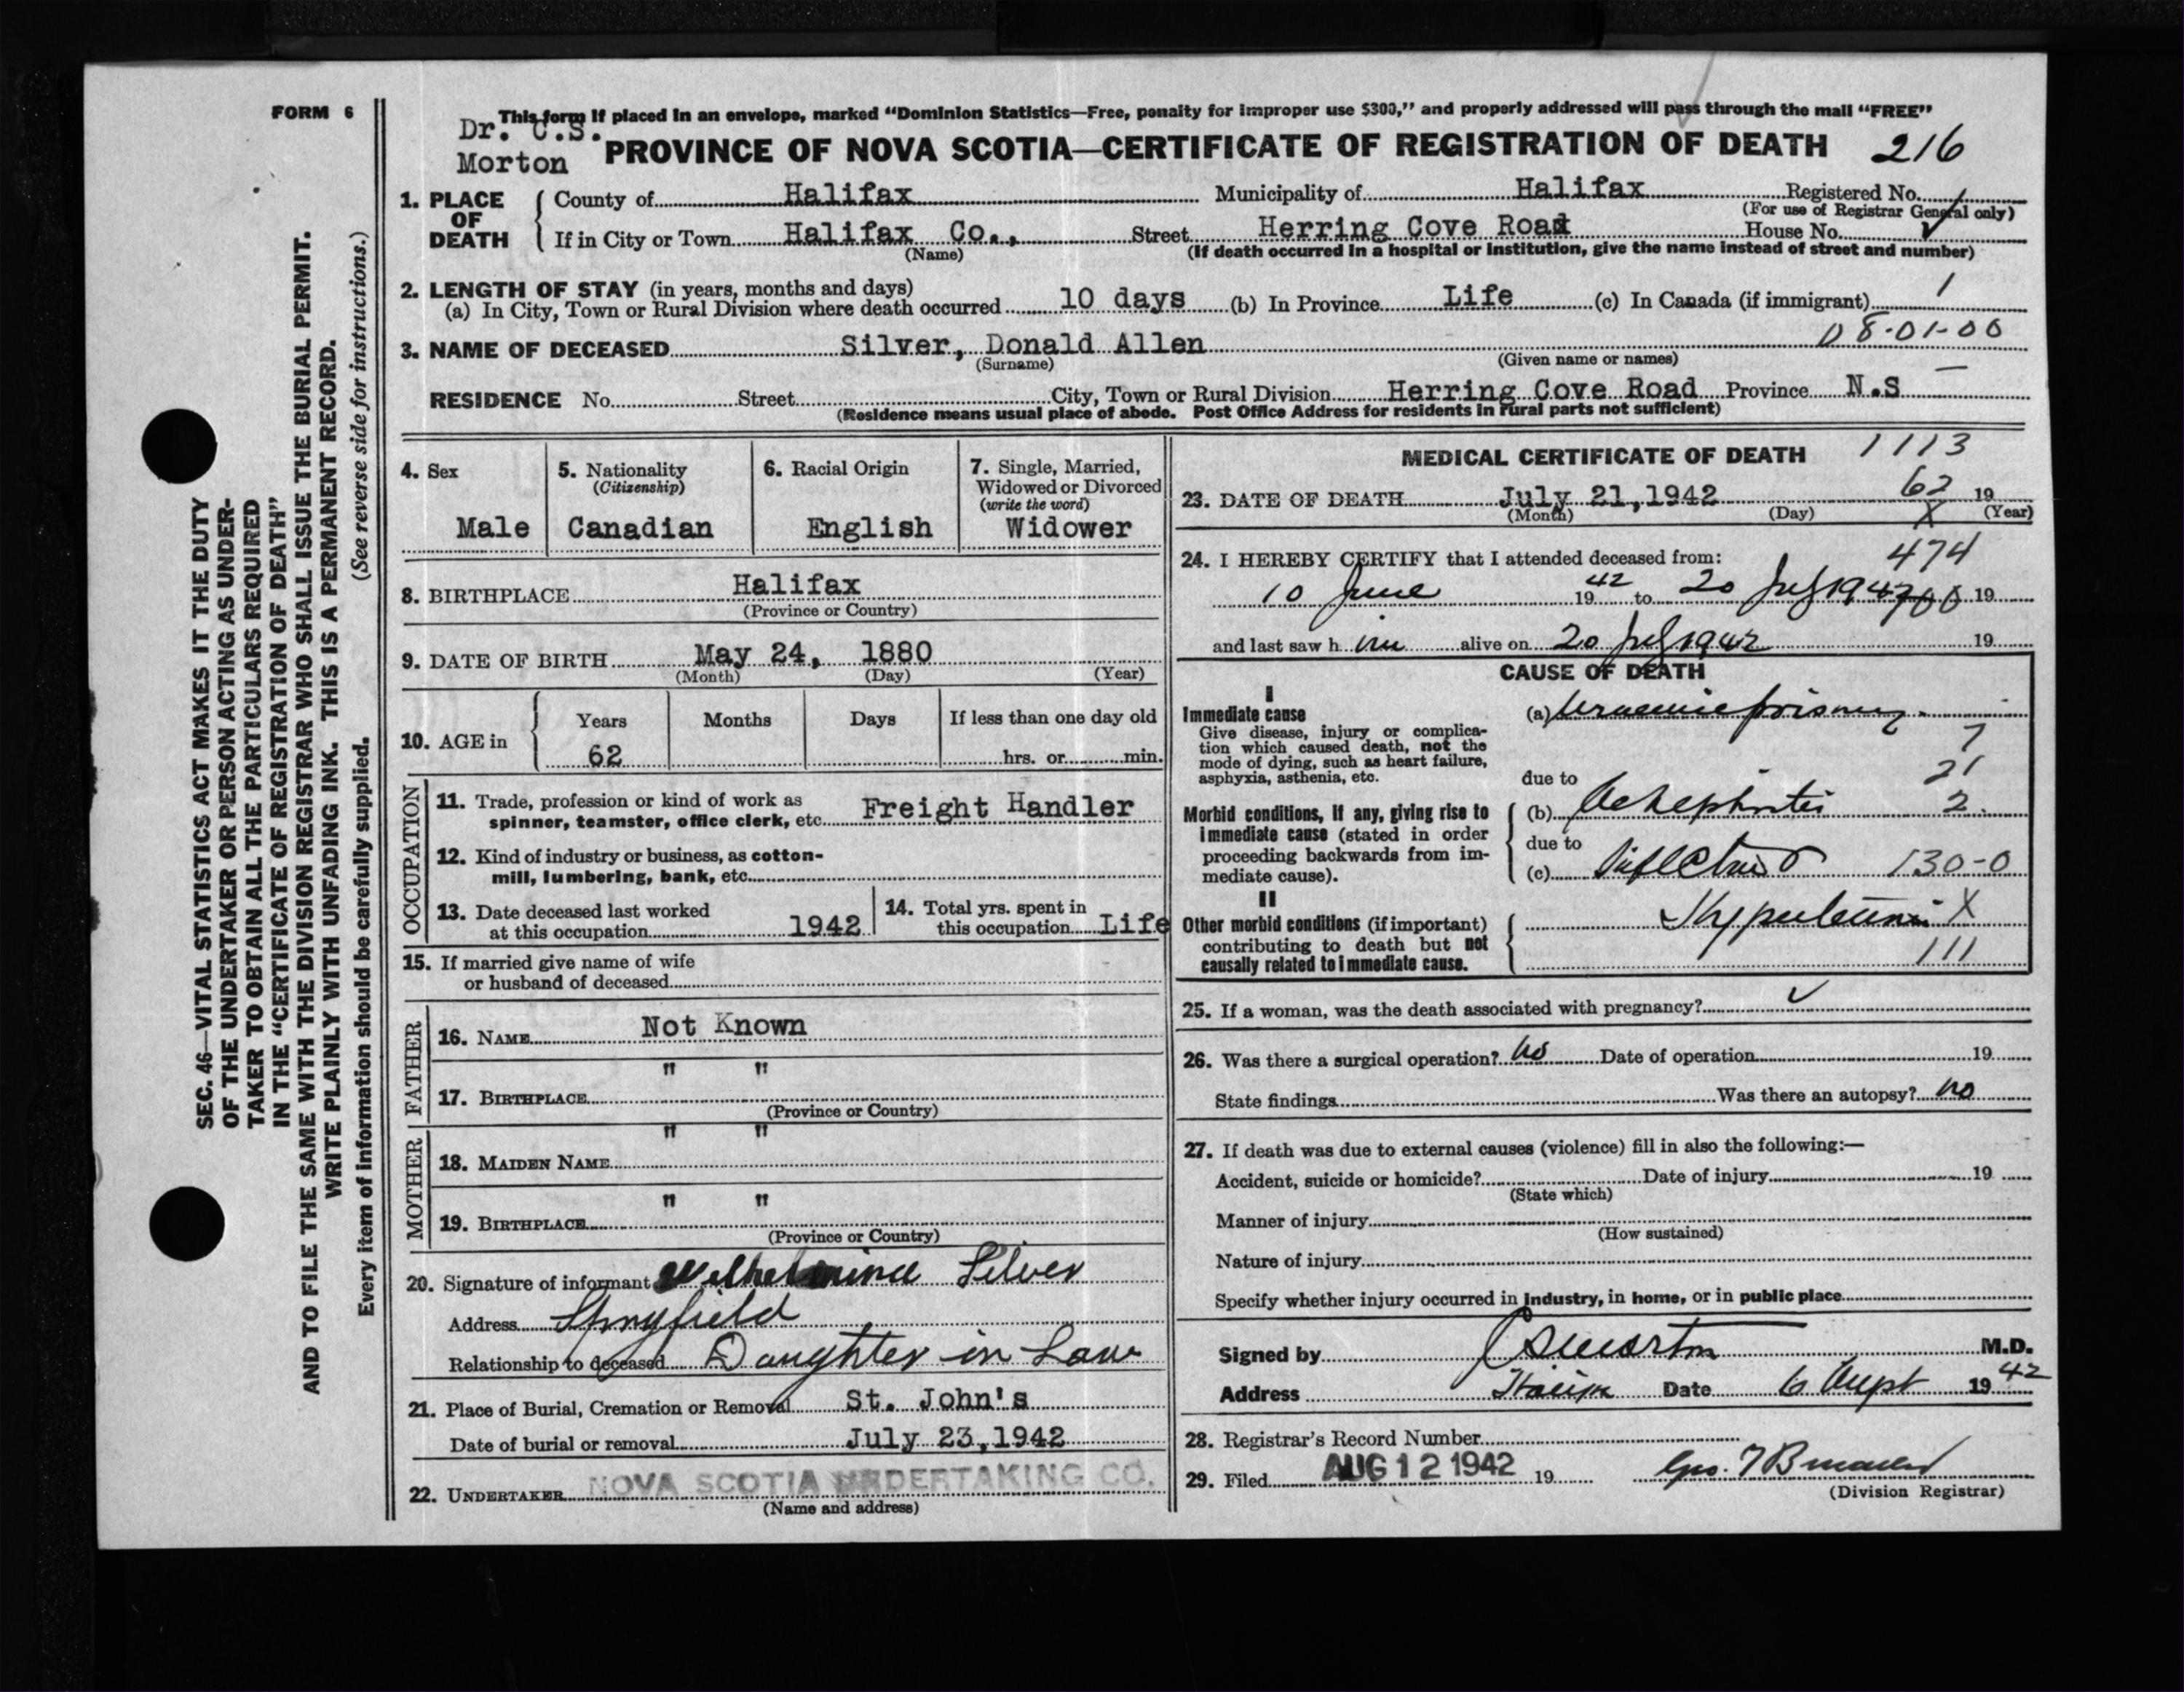 FORM 6
This form if placed in an envelope, marked “Dominion Statistics—Free, penalty for improper use $300,” and properly addressed will pass through the mail “FREE”
Dr. C.S.
Morton
PROVINCE OF NOVA SCOTIA—CERTIFICATE OF REGISTRATION OF DEATH 216
1. PLACE OF DEATH
County of Halifax Municipality of Halifax Registered No.
(For use of Registrar General only)
If in City or Town Halifax Co., Street Herring Cove Road House No.
(Name) (If death occurred in a hospital or institution, give the name instead of street and number)
2. LENGTH OF STAY (in years, months and days)
(a) In City, Town or Rural Division where death occurred 10 days (b) In Province Life (c) In Canada (if immigrant)
08-01-00
3. NAME OF DECEASED Silver, Donald Allen
(Surname) (Given name or names)
RESIDENCE No. Street City, Town or Rural Division Herring Cove Road Province N.S
(Residence means usual place of abode. Post Office Address for residents in rural parts not sufficient)
4. Sex
Male
5. Nationality
(Citizenship)
Canadian
6. Racial Origin
English
7. Single, Married,
Widowed or Divorced
(write the word)
Widower
8. BIRTHPLACE Halifax
(Province or Country)
9. DATE OF BIRTH May 24, 1880
(Month) (Day) (Year)
10. AGE in
Years Months Days If less than one day old
62 hrs. or min.
OCCUPATION
11. Trade, profession or kind of work as
spinner, teamster, office clerk, etc. Freight Handler
12. Kind of industry or business, as cotton-
mill, lumbering, bank, etc.
13. Date deceased last worked
at this occupation 1942
14. Total yrs. spent in
this occupation Life
15. If married give name of wife
or husband of deceased
FATHER
16. NAME Not Known
" "
17. BIRTHPLACE
(Province or Country)
MOTHER
" "
18. MAIDEN NAME
" "
19. BIRTHPLACE
(Province or Country)
20. Signature of informant Wilhelmina Silver
Address Spryfield
Relationship to deceased Daughter in Law
21. Place of Burial, Cremation or Removal St. John's
Date of burial or removal July 23, 1942
22. UNDERTAKER NOVA SCOTIA UNDERTAKING CO.
(Name and address)
MEDICAL CERTIFICATE OF DEATH 1113
23. DATE OF DEATH July 21, 1942 62 19
(Month) (Day) X (Year)
474
24. I HEREBY CERTIFY that I attended deceased from:
10 June 1942 to 20 July 1942 19
and last saw him alive on 20 July 1942 19
CAUSE OF DEATH
I
Immediate cause
Give disease, injury or complica-
tion which caused death, not the
mode of dying, such as heart failure,
asphyxia, asthenia, etc.
(a) Uraemic poisoning
7
21
due to
Morbid conditions, if any, giving rise to
immediate cause (stated in order
proceeding backwards from im-
mediate cause).
(b) 2.
due to
(c) 130-0
II
Other morbid conditions (if important)
contributing to death but not
causally related to immediate cause.
X
111
25. If a woman, was the death associated with pregnancy?
26. Was there a surgical operation? no Date of operation 19
State findings Was there an autopsy? no
27. If death was due to external causes (violence) fill in also the following:—
Accident, suicide or homicide? Date of injury 19
(State which)
Manner of injury
(How sustained)
Nature of injury
Specify whether injury occurred in industry, in home, or in public place
Signed by CS Morton M.D.
Address Halifax Date 6 Augst 1942
28. Registrar's Record Number
29. Filed AUG 12 1942 19
(Division Registrar)
SEC. 46—VITAL STATISTICS ACT MAKES IT THE DUTY
OF THE UNDERTAKER OR PERSON ACTING AS UNDER-
TAKER TO OBTAIN ALL THE PARTICULARS REQUIRED
IN THE “CERTIFICATE OF REGISTRATION OF DEATH”
AND TO FILE THE SAME WITH THE DIVISION REGISTRAR WHO SHALL ISSUE THE BURIAL PERMIT.
WRITE PLAINLY WITH UNFADING INK. THIS IS A PERMANENT RECORD.
Every item of information should be carefully supplied. (See reverse side for instructions.)